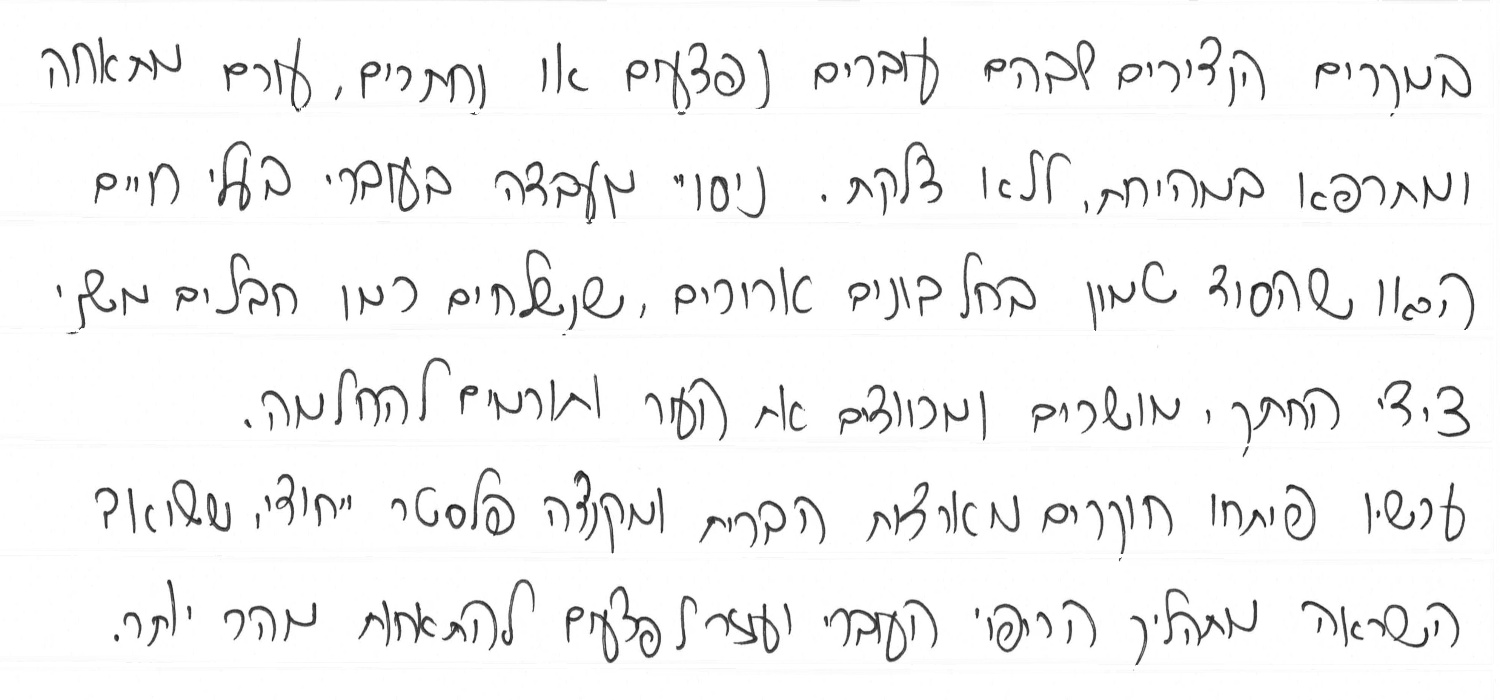 במקרים הנדירים שבהם עוברים נפצעים או נחתכים, עורם מתאחה
ומתרפא במהירות, ללא צלקת. ניסויי מעבדה בעוברי בעלי חיים
הראו שהסוד טמון בחלבונים ארוכים, שנשלחים כמו חבלים משני
צידי החתך, מושכים ומכווצים את העור ותורמים להחלמה.
עכשיו פיתחו חוקרים מארצות הברית ומקנדה פלסטר ייחודי, ששואב
השראה מתהליך הריפוי העוברי ועוזר לפצעים להתאחות מהר יותר.